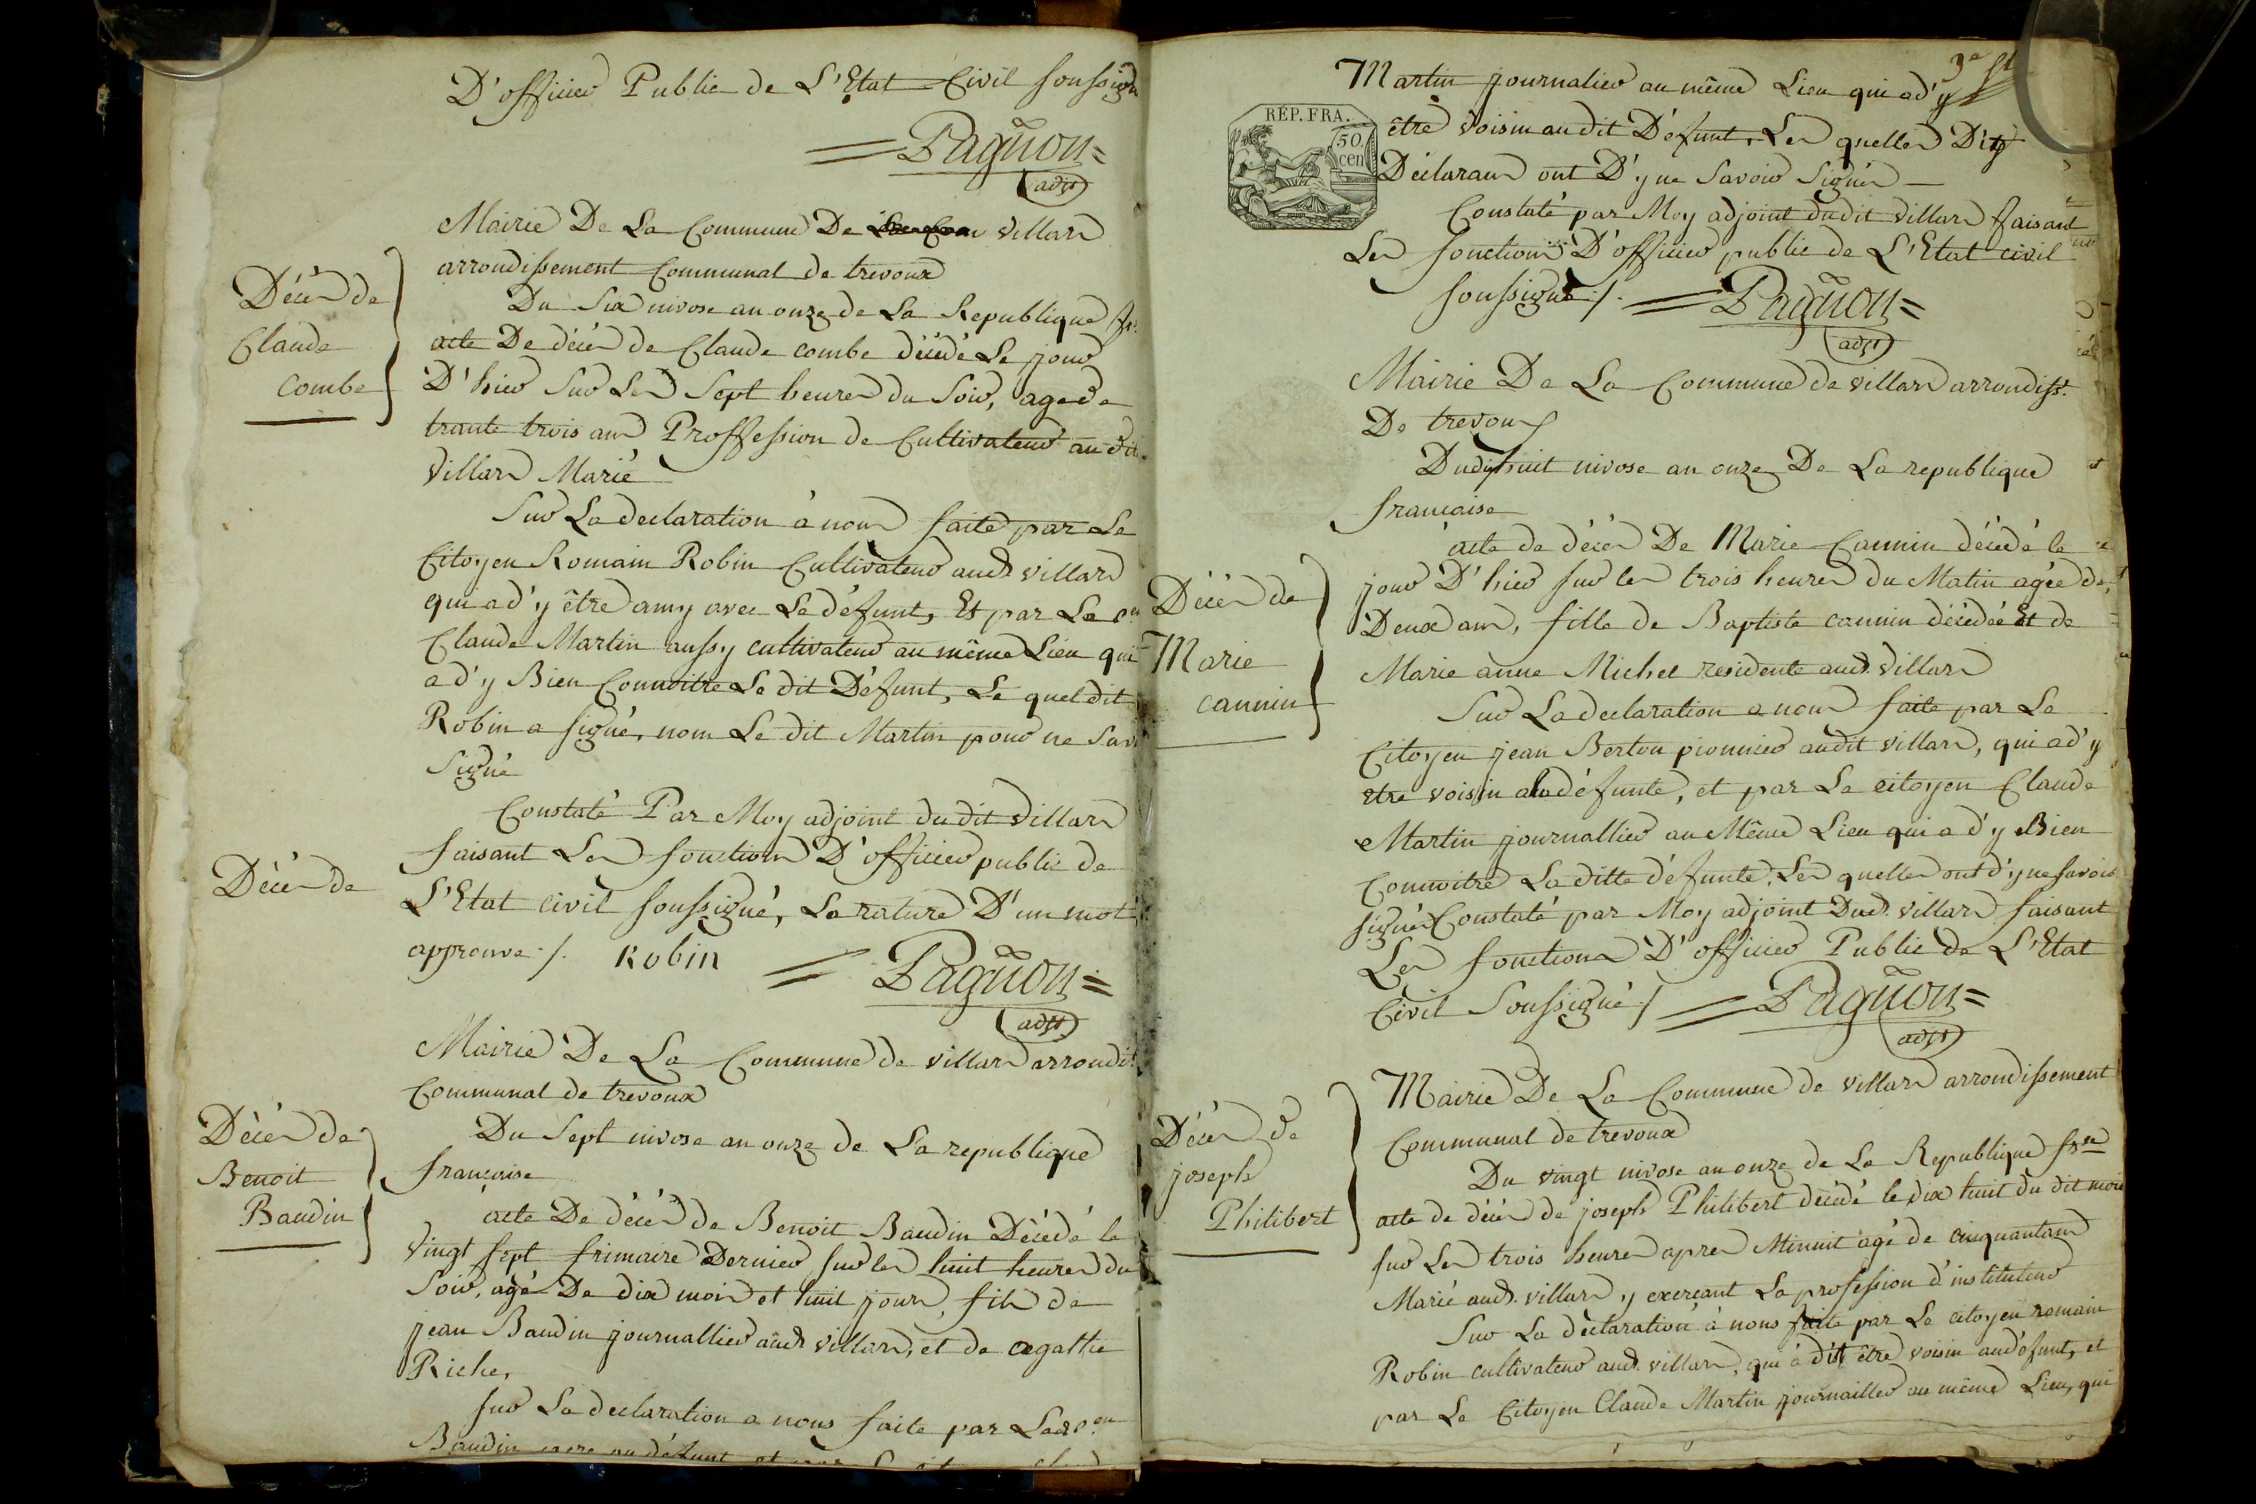 D'officier Public de L'Etat Civil soussigné
= Pagnon =
adjt
Mairie De La Commune De villars
arrondissement Communal de trevoux
Décés de
Claude
combe
Du Six nivose an onze de La Republique fr.
acte De décés de Claude combe décédé Le jour
D'hier Sur Les Sept heures du Soir, age de
trante trois ans Proffession de Cultivateur au dit
Villars Marié
Sur La declaration à nous faite par Le
Citoyen Romain Robin Cultivateur aud. villars
qui a d'y être amy avec Le défunt, Et par Le cn
Claude Martin aussy cultivateur au même Lieu qui
a d'y Bien Connoitre Le dit Défunt, Le quel dit
Robin a signé, nom Le dit Martin pour ne Savoir
Signé
Constaté Par Moy adjoint du dit Villars
faisant Les fonctions D'officier public de
L'Etat civil soussigné, La rature D'un mot
approuve ./. Robin = Pagnon =
adjt
Décés de
Mairie De La Commune de villars arrondit
Communal de trevoux
Décés de
Benoit
Baudin
Du Sept nivose an onze de La republique
francaise
acte De décés de Benoit Baudin Décédé le
vingt sept frimaire Dernier sur les huit heures du
Soir, agé De dix mois et huit jours, fils de
jean Baudin journallier aud. villars, et de agathe
Riche,
sur La declaration a nous faite par Led. cen
Baudin pere au défunt et par
3e ft
Martin journalier au même Lieu qui a d'y
REP. FRA.
50
cen
être voisin au dit Défunt, Les quelles Dits
Déclarans ont D'y ne Savoir Signés
Constaté par Moy adjoint du dit villars faisant
Les fonctions D'officier public de L'Etat civil
soussigné ./. = Pagnon =
adjt
Mairie De La Commune de villars arrondisst.
De trevoux
Du dix huit nivose an onze De La republique
francaise
Décés de
Marie
cannin
acte de décés De Marie Cannin décédé le
jour D'hier sur les trois heures du Matin agée de
Deux ans, fille de Baptiste cannin décédée Et de
Marie anne Michel residente aud. villars
Sur La declaration a nous faite par Le
Citoyen jean Berton pionnier audit villars, qui a d'y
etre voisin a la défunte, et par Le citoyen Claude
Martin journallier au Même Lieu qui a d'y Bien
Connoitre La ditte défunte, Les quelles ont d'y ne savoir
signér Constaté par Moy adjoint Dud. villars faisant
Les fonctions D'officier Public de L'Etat
Civil Soussigné ./ = Pagnon =
adjt
Mairie De La Commune de villars arrondissement
Communal de trevoux
Décés de
joseph
Philibert
Du vingt nivose an onze de La Republique frse
acte de décés de joseph Philibert décédé le dix huit du dit mois
sur Les trois heures apres Minuit agé de cinquantans
Marié aud. villars, y exercant La profession d'instituteur
Sur La déclaration à nous faite par Le citoyen romain
Robin cultivateur aud. villars, qui à dit être voisin au défunt, et
par Le Citoyen Claude Martin journailler au même Lieu, qui